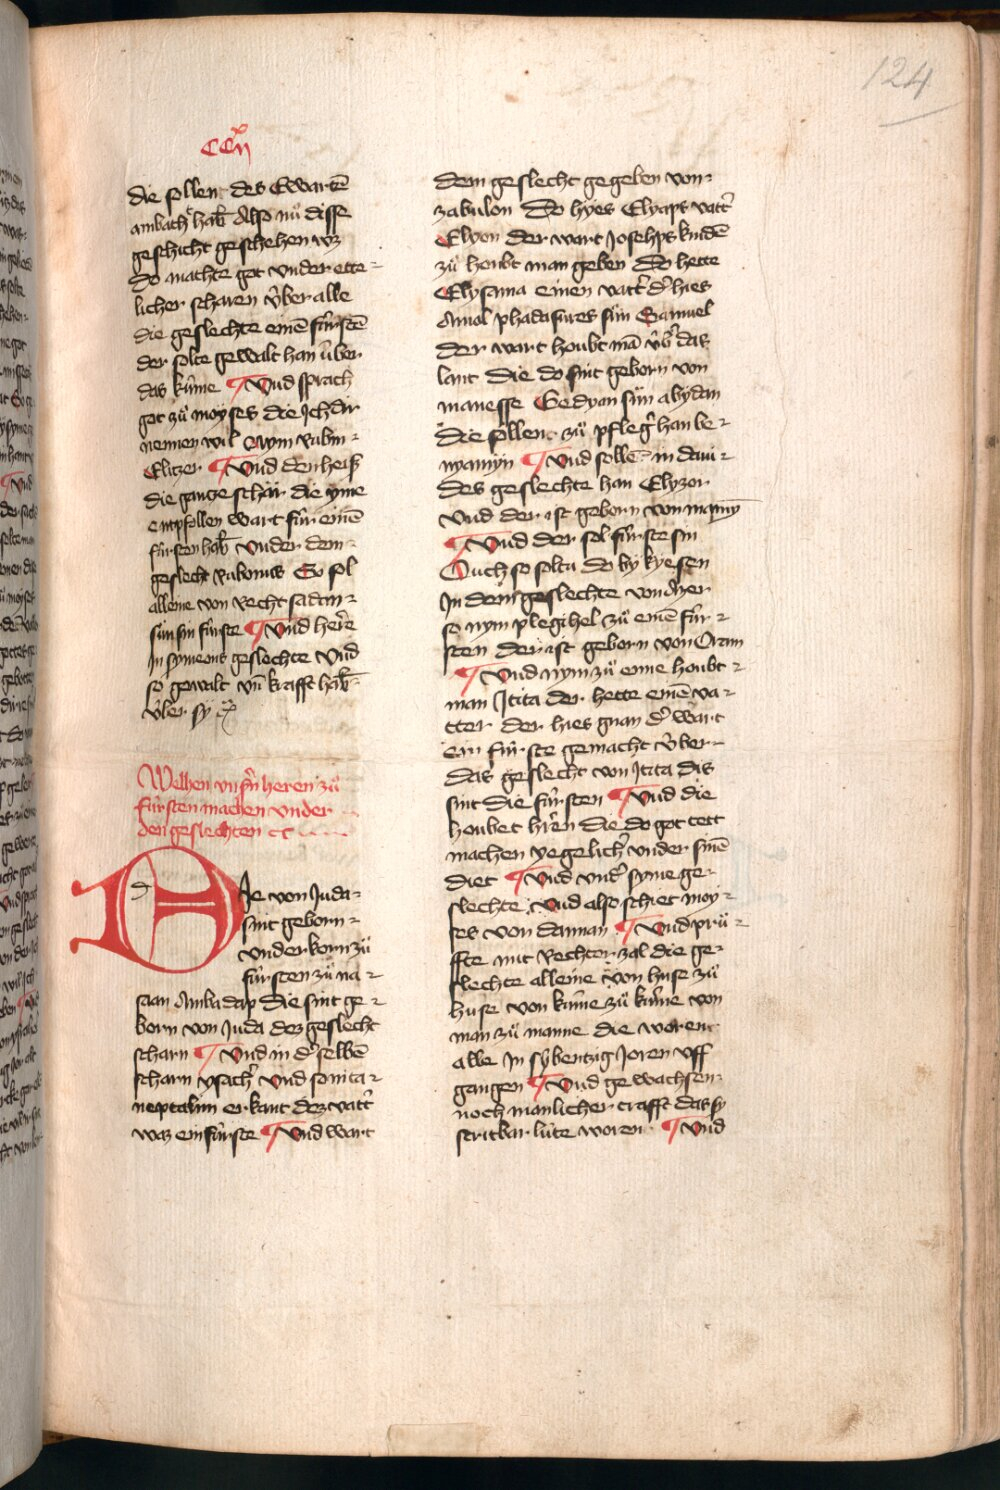 124
CCxii
die sollent des Ewartē
ambacht hab̄ Also nu disse
geschicht geschehen wz
do machte got vnder ette-
licher scharen v̊ber alle
die geslechte einē fürstē
der solte gewalt han über
das kúnne ¶ Vnd sprach
got zů moyses die Jch dir
nemen wil
Elitzer ¶ Vnd den heiß
die gantze schar die yme
entpfollen wart für einē
fürsten hab̄ vnder dem
geslecht rubonus So sol
alleine von recht
sun sin fürste ¶ Vnd here
Jn symeons geslechte Vnd
so gewalt vn̄ krafft hab̄
vber sy
Welhen vnsern heren zů
fürsten machen vnder
den geslechten cc
DJe von Juda
sint geborn
vnder korn zů
fürsten zů na-
saan Ambadap die sint ge-
born von Juda dez geslecht
scharn ¶ Vnd in d' selbē
scharn ysach' Vnd so nita-
neptalim er kant dez vatt'
waz ein fürste ¶ Vnd wart
dem geslecht gegeben von
zabulon Do hyes Elyaps vatt'
Elyon der wart Josephs kindē
zů houbt man geben Do hette
Elysama einen vatt' d' hies
Amol phadasures sün Gamuel
der wart houbt mā vb' das
lant die do sint geborn von
manesse Gedyan sün abydan
die sollent zů pfleg' han be-
nyamyn ¶ Vnd sollē in dani-
des geslechte han Elyzer
Vnd der ist geborn von
¶ Vnd der sol fürste sin
Ouch so soltu do by kyesen
Jn dem geslechte von Aser
so nym plegihel zů einē für-
sten der ist geborn von Oram
¶ Vnd nym zů eine houbt-
man Jtita der hette einē va-
tter der hies gnan d' wart
ein fürste gemacht v̊ber
das geslecht von Jtita dis
sint die fürsten ¶ Vnd die
houbet h'ren die do got tett
machen yegelich' vnder sinē
diet ¶ Vnd vnd' syme ge-
slechte Vnd also schiet moy-
ses von dannan ¶ Vnd prü-
ffte mit rechter zal die ge-
slechte alleine von huse zů
huse von künne zů künne von
man zů manne die worent
alle Jn sybentzig Joren vff
gangen ¶ Vnd gewachsen
noch manlicher crafft das sy
stritbar lüte woren ¶ Vnd